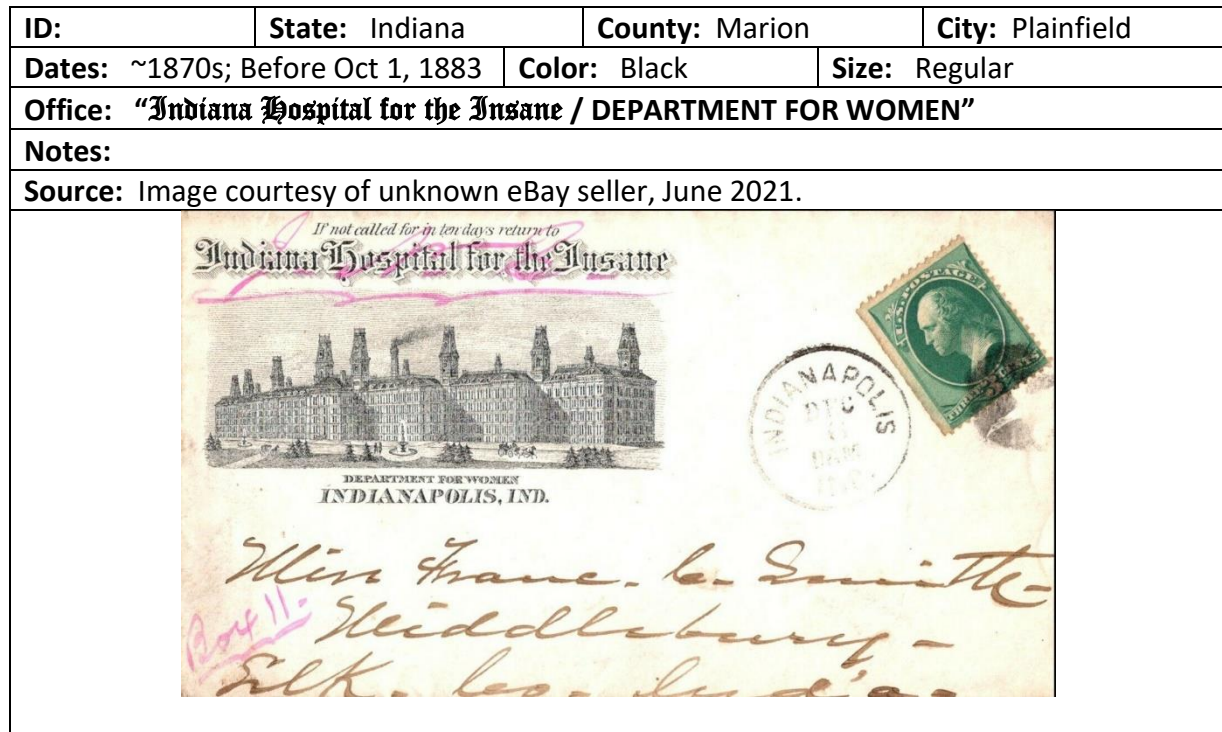 ID: State: Indiana County: Marion City: Plainfield
Dates: ~1870s; Before Oct 1, 1883 Color: Black Size: Regular
Office: "Indiana Hospital for the Insane / DEPARTMENT FOR WOMEN"
Notes:
Source: Image courtesy of unknown eBay seller, June 2021.
If not called for in ten days return to
Indiana Hospital for the Insane
DEPARTMENT FOR WOMEN
INDIANAPOLIS, IND.
U.S. POSTAGE
THREE CENTS
INDIANAPOLIS
DEC
IND.
Miss Franc. C. Smith-
Box 11.
Middlebury-
Elk. Co. Ind'a-